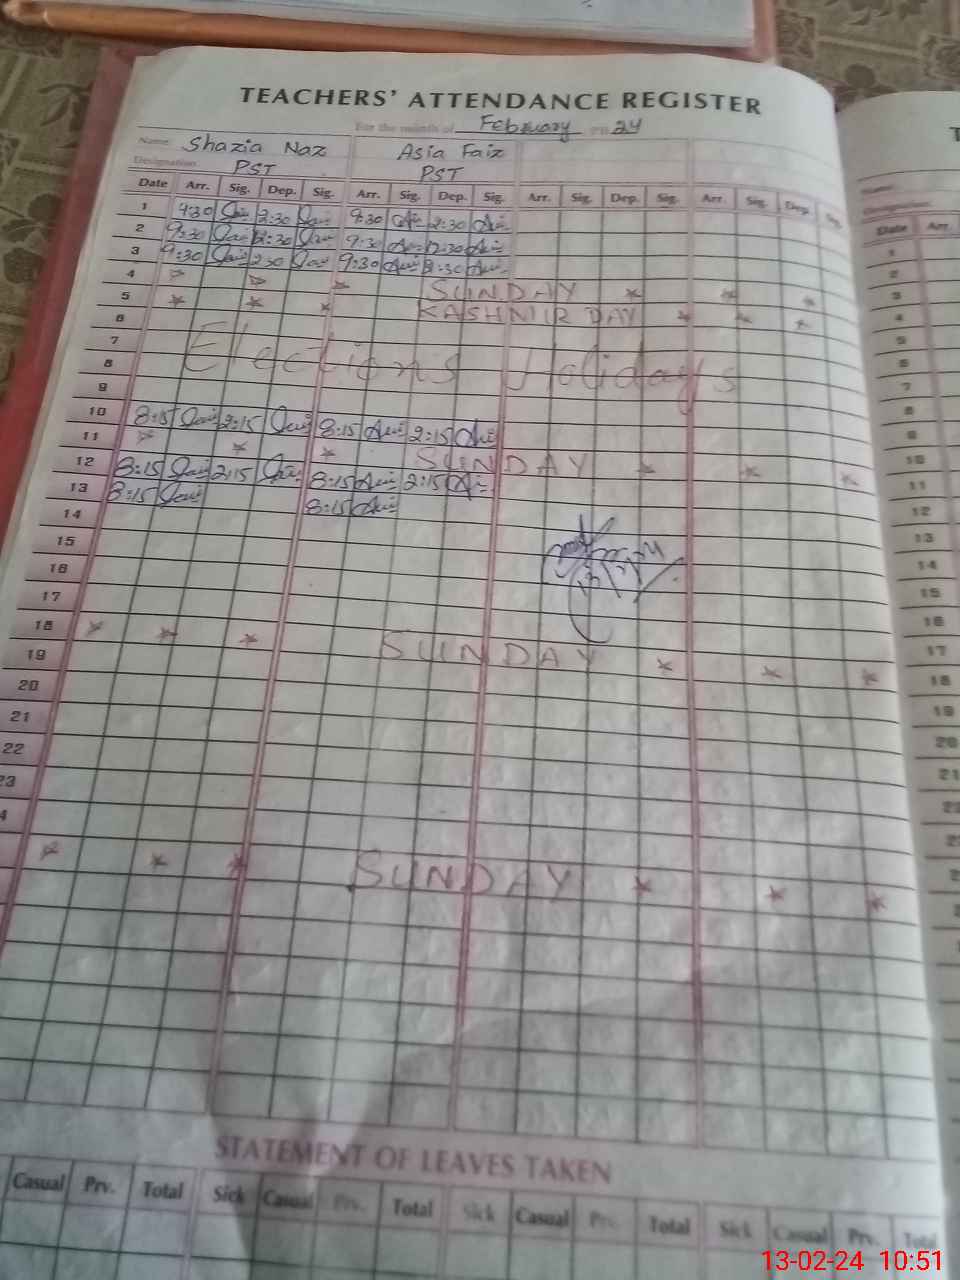 TEACHERS' ATTENDANCE REGISTER
For the month of February 24
Name: Shazia Naz Asia Faiz
Designation: PST PST
Date Arr. Sig. Dep. Sig. Arr. Sig. Dep. Sig. Arr. Sig. Dep. Sig. Arr. Sig. Dep. Sig.
1 9:30 2:30 9:30 2:30
2 9:30 12:30 9:30 12:30
3 9:30 9:30
4 SUNDAY
5 KASHMIR DAY
6
7 Elections Holidays
8
9
10 8:15 2:15 8:15 2:15
11 SUNDAY
12 8:15 2:15 8:15 2:15
13 8:15 8:15
14
15
16
17
18 SUNDAY
19
20
21
22
23
4
SUNDAY
STATEMENT OF LEAVES TAKEN
Casual Prv. Total Sick Casual Prv. Total Sick Casual Prv. Total Sick Casual Prv. Total
Name:
Designation:
Date Arr.
1
2
3
4
5
6
7
8
9
10
11
12
13
14
15
16
17
18
19
20
21
13-02-24 10:51